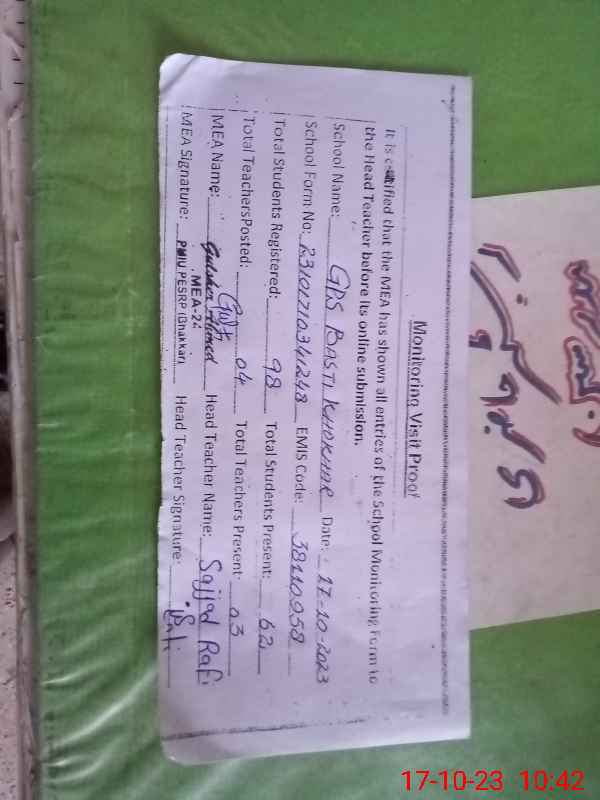 Monitoring Visit Proof
It is certified that the MEA has shown all entries of the School Monitoring Form to
the Head Teacher before its online submission.
School Name: GPS BASTI KHOKHAR Date: 17-10-2023
School Form No: 23101710341248 EMIS Code: 38110058
Total Students Registered: 98 Total Students Present: 62
Total TeachersPosted: 04 Total Teachers Present: 03
MEA Name: Gulsher Ahmed Head Teacher Name: Sajjad Rafi
MEA-2
MEA Signature: PMIU PESRP (Bhakkar) Head Teacher Signature: Rafi
17-10-23 10:42